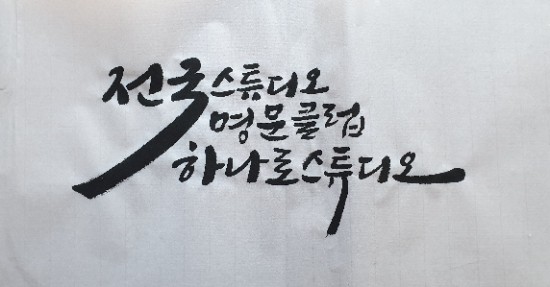 전국스튜디오
명문클럽
하나로스튜디오